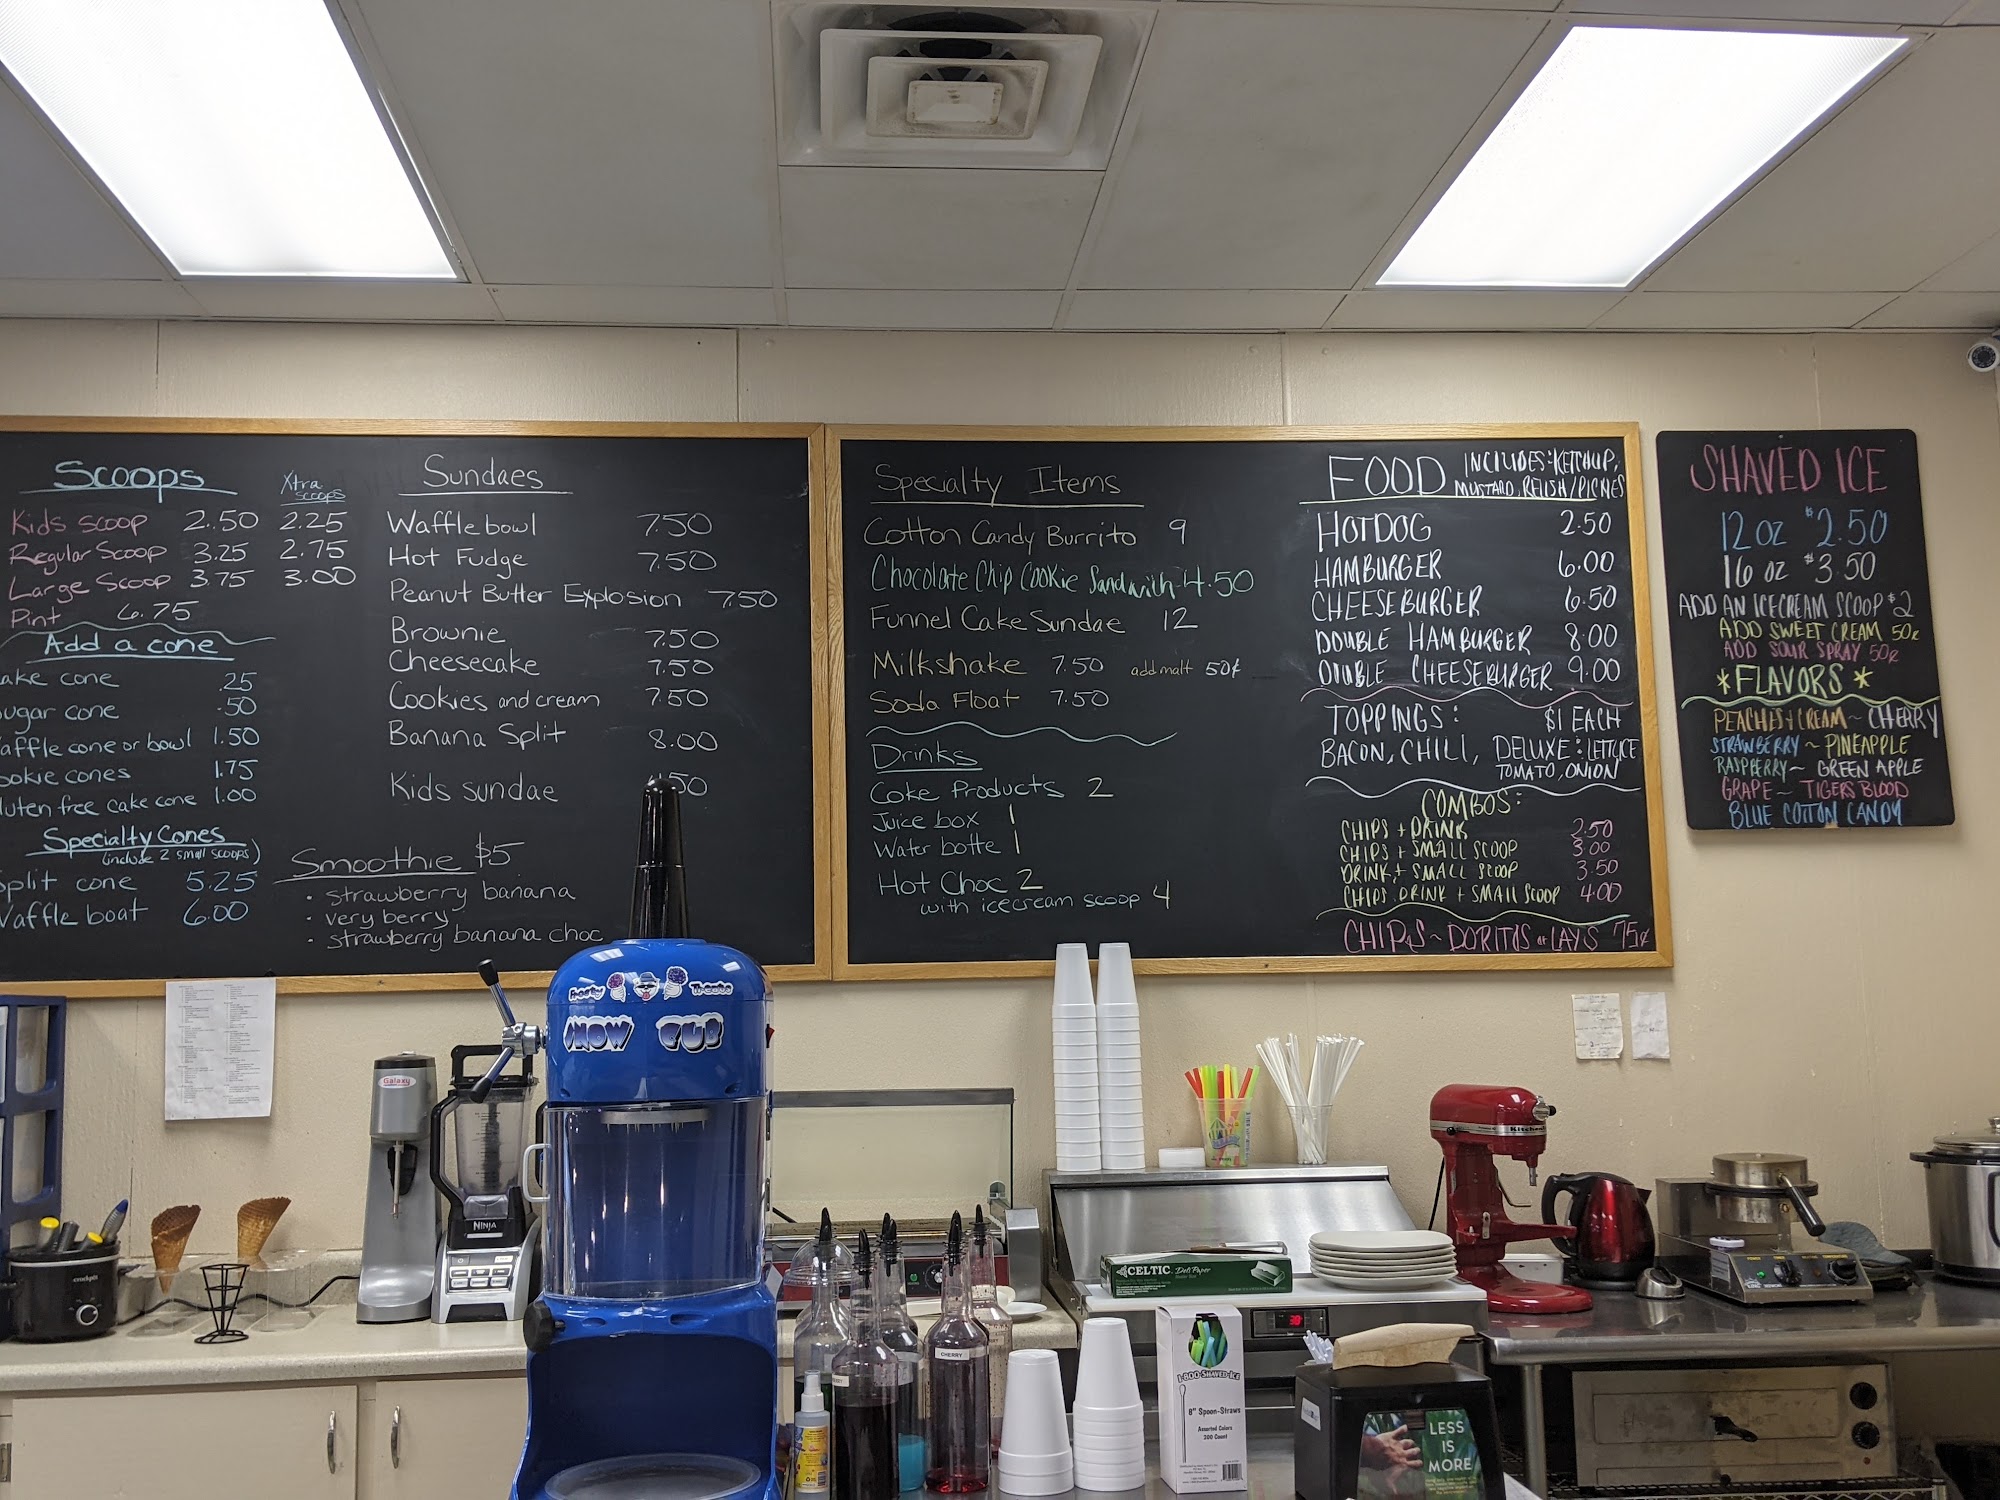 Scoops
Xtra scoops
Kids scoop 2.50 2.25
Regular Scoop 3.25 2.75
Large Scoop 3.75 3.00
Pint 6.75
Add a cone
ake cone .25
ugar cone .50
affle cone or bowl 1.50
ookie cones 1.75
luten free cake cone 1.00
Specialty Cones
(include 2 small scoops)
plit cone 5.25
affle boat 6.00
Sundaes
Waffle bowl 7.50
Hot Fudge 7.50
Peanut Butter Explosion 7.50
Brownie 7.50
Cheesecake 7.50
Cookies and cream 7.50
Banana Split 8.00
Kids sundae 50
Smoothie $5
• strawberry banana
• very berry
• strawberry banana choc
Specialty Items
Cotton Candy Burrito 9
Chocolate Chip Cookie Sandwich 4.50
Funnel Cake Sundae 12
Milkshake 7.50 add malt 50¢
Soda Float 7.50
Drinks
Coke Products 2
Juice box 1
Water bottle 1
Hot Choc 2
with icecream scoop 4
FOOD INCLUDES: KETCHUP,
MUSTARD, RELISH/PICKLES
HOTDOG 2.50
HAMBURGER 6.00
CHEESEBURGER 6.50
DOUBLE HAMBURGER 8.00
DOUBLE CHEESEBURGER 9.00
TOPPINGS: $1 EACH
BACON, CHILI, DELUXE: LETTUCE
TOMATO, ONION
COMBOS:
CHIPS + DRINK 2.50
CHIPS + SMALL SCOOP 3.00
DRINK + SMALL SCOOP 3.50
CHIPS, DRINK + SMALL SCOOP 4.00
CHIPS ~ DORITOS or LAYS 75¢
SHAVED ICE
12 oz $2.50
16 oz $3.50
ADD AN ICECREAM SCOOP $2
ADD SWEET CREAM 50¢
ADD SOUR SPRAY 50¢
* FLAVORS *
PEACHES + CREAM ~ CHERRY
STRAWBERRY ~ PINEAPPLE
RASPBERRY ~ GREEN APPLE
GRAPE ~ TIGERS BLOOD
BLUE COTTON CANDY
Frosty Treats
SNOW CUP
Galaxy
NINJA
crockpot
CHERRY
CELTIC Deli Paper
1-800-Shaved-Ice
8" Spoon-Straws
Assorted Colors
200 Count
KitchenAid
LESS
IS
MORE